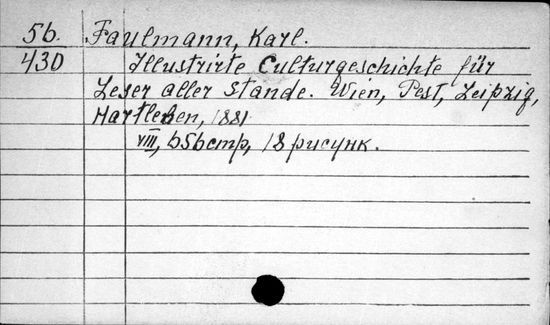 56.
430
Faulmann, Karl.
Illustrirte Culturgeschichte für
Leser aller Stande. Wien, Pest, Leipzig,
Hartleben, 1881
VIII, 656 стр, 18 рисунк.